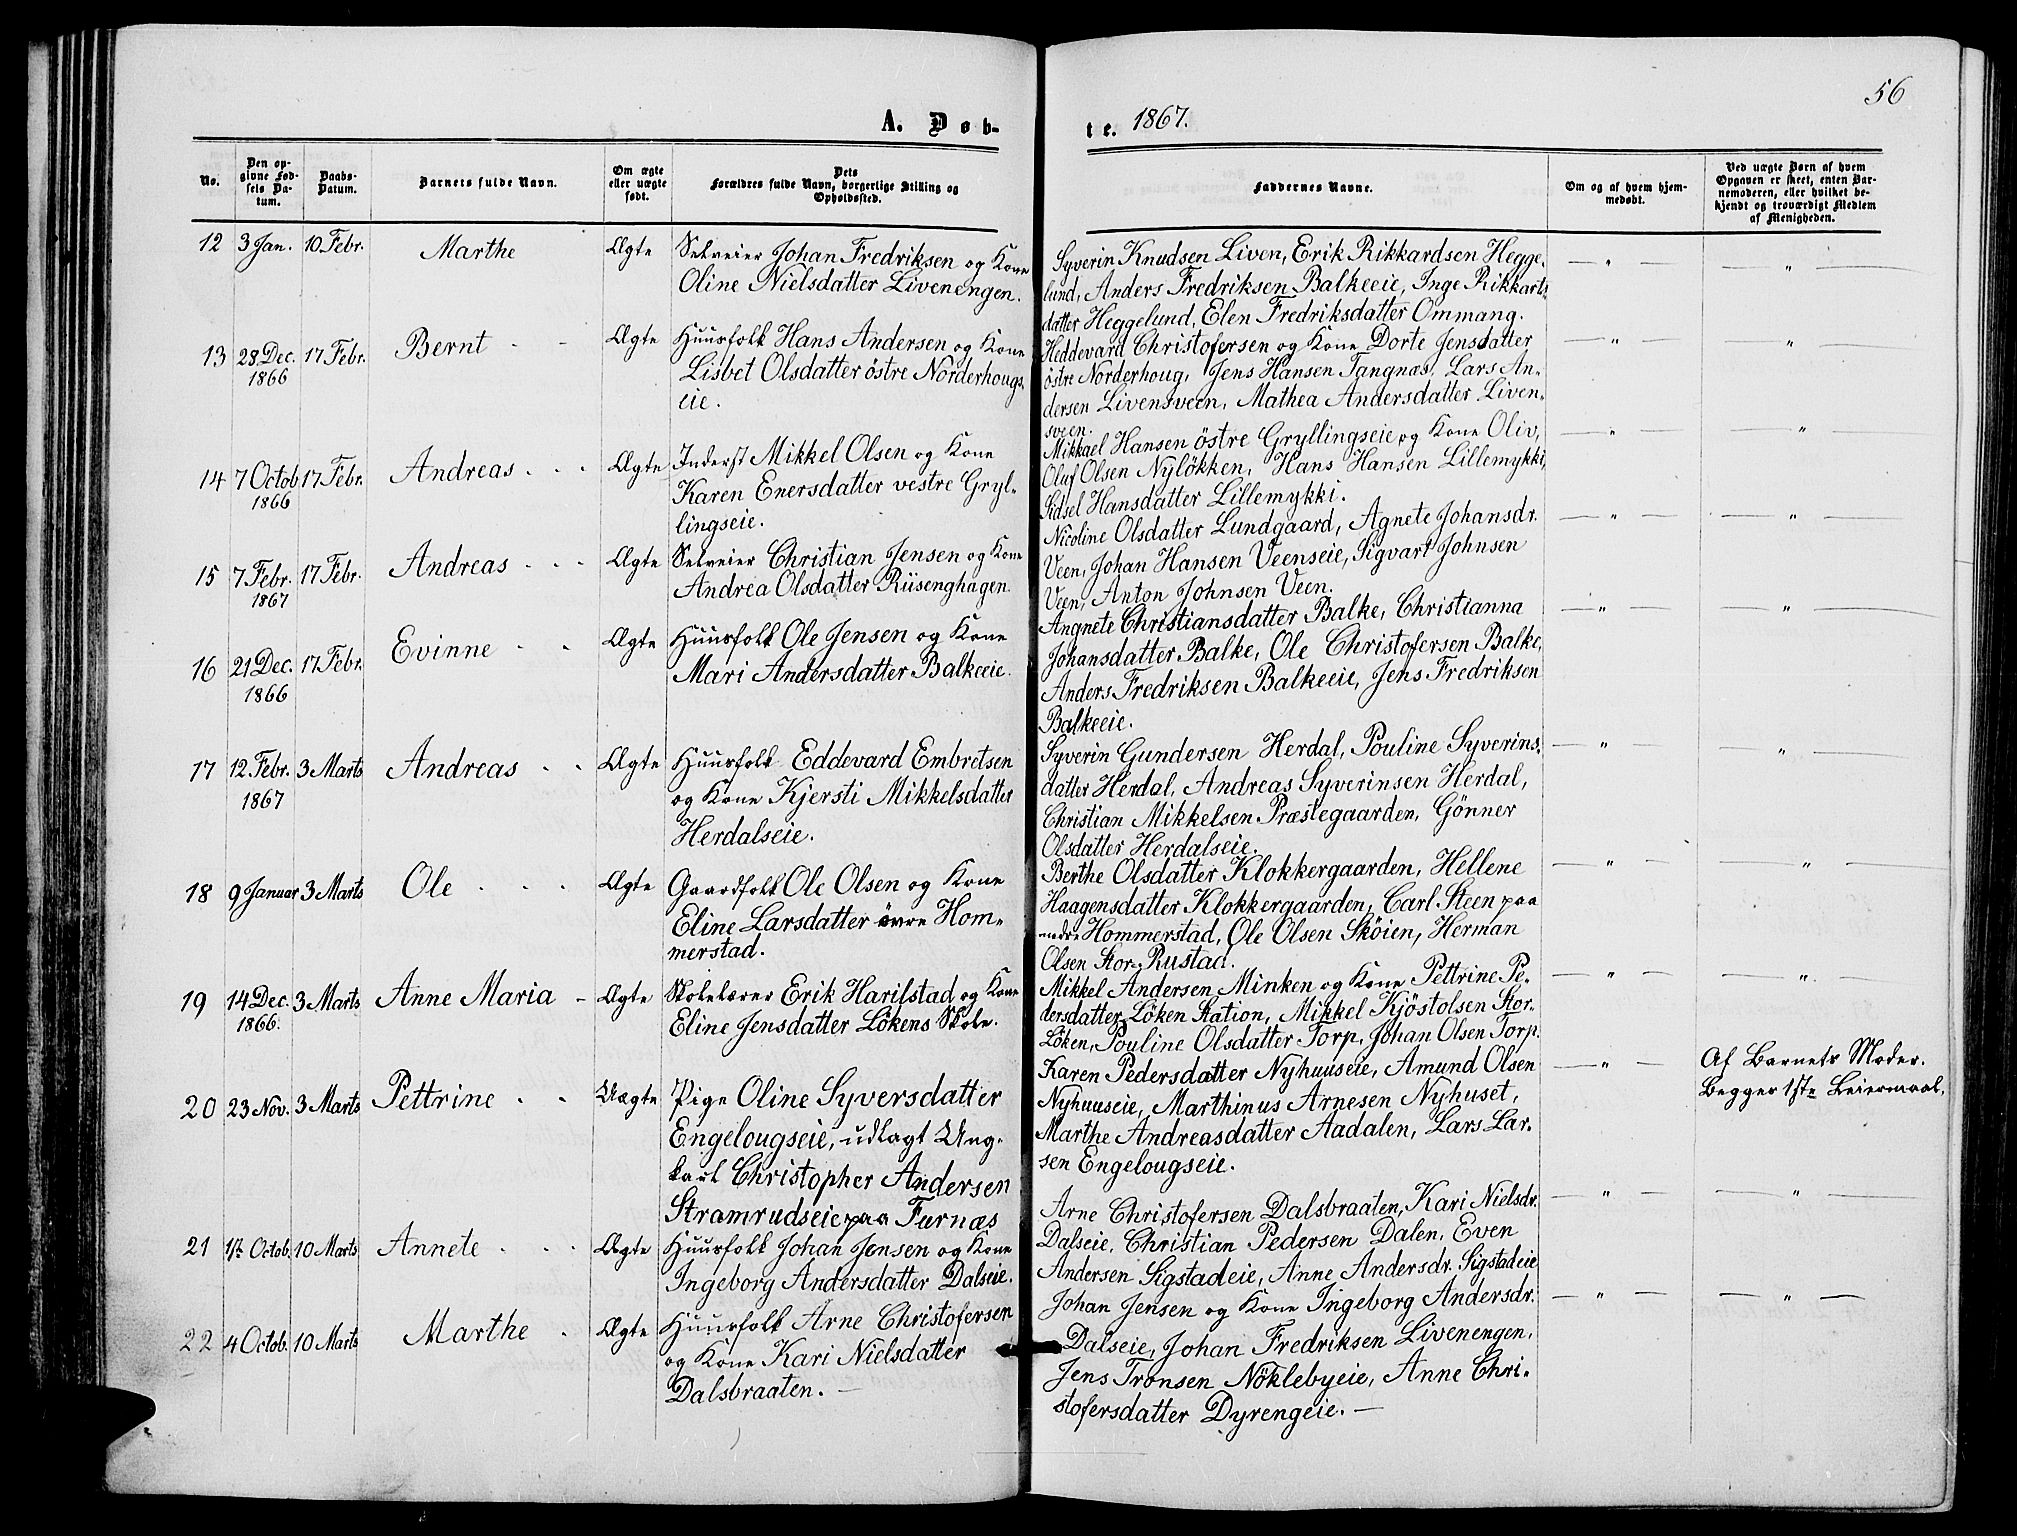 56
A. Døb-
te. 1867.
No.
Den op-
givne Fød-
sels Da-
tum.
Daabs-
Datum.
Barnets fulde Navn.
Om ægte
eller uægte
født.
Dets
Forældres fulde Navn, borgerlige Stilling og
Opholdssted.
Faddernes Navne.
Om og af hvem hjem-
medøbt.
Ved uægte Børn af hvem
Opgaven er skeet, enten Bar-
nemoderen, eller hvilket be-
kjendt og troværdigt Medlem
af Menigheden.
12 3 Jan. 10 Febr. Marthe Ægte Selveier Johan Fredriksen og Kone
Oline Nielsdatter Livenengen.
Syverin Knudsen Liven, Erik Rikkardsen Hegge-
lund, Anders Fredriksen Balkeeie, Inge Rikkarts-
datter Heggelund, Elen Fredriksdatter Ommang.
— " — — " —
13 28 Dec. 17 Febr. Bernt - - Ægte Huusfolk Hans Andersen og Kone
1866
Lisbet Olsdatter östre Norderhougs-
eie.
Heddevard Christofersen og Kone Dorte Jensdatter
östre Norderhoug, Jens Hansen Tangnæs, Lars An-
dersen Livensveen, Mathea Andersdatter Liven-
sveen.
— " — — " —
14 7 Octob 17 Febr. Andreas - - - Ægte Inderst Mikkel Olsen og Kone
1866
Karen Enersdatter vestre Gryl-
lingseie.
Mikkael Hansen östre Gryllingseie og Kone Oliv,
Oluf Olsen Nylökken, Hans Hansen Lillemykki,
Sidsel Hansdatter Lillemykki.
— " — — " —
15 7 Febr. 17 Febr. Andreas - - - Ægte Selveier Christian Jensen og Kone
1867
Andrea Olsdatter Riisenghagen.
Nicoline Olsdatter Lundgaard, Agnete Johansdr.
Veen, Johan Hansen Veenseie, Sigvart Johnsen
Veen, Anton Johnsen Veen.
— " — — " —
16 21 Dec. 17 Febr. Evinne - - Ægte Huusfolk Ole Jensen og Kone
1866
Mari Andersdatter Balkeeie.
Angnete Christiansdatter Balke, Christianna
Johansdatter Balke, Ole Christofersen Balke,
Anders Fredriksen Balkeeie, Jens Fredriksen
Balkeeie.
— " — — " —
17 12 Febr. 3 Marts Andreas - - Ægte Huusfolk Eddevard Embretsen
1867
og Kone Kjersti Mikkelsdatter
Herdalseie.
Syverin Gundersen Herdal, Pouline Syverins-
datter Herdal, Andreas Syverinsen Herdal,
Christian Mikkelsen Præstegaarden, Gönner
Olsdatter Herdalseie.
— " — — " —
18 9 Januar 3 Marts Ole - - - Ægte Gaardfolk Ole Olsen og Kone
Eline Larsdatter övre Hom-
merstad.
Berthe Olsdatter Klokkergaarden, Hellene
Haagensdatter Klokkergaarden, Carl Steen paa
nedre Hommerstad, Ole Olsen Sköien, Herman
Olsen Stor-Rustad.
— " — — " —
19 14 Dec. 3 Marts Anne Maria - Ægte Skolelærer Erik Harilstad og Kone
1866.
Eline Jensdatter Lökens Skole.
Mikkel Andersen Minken og Kone Pettrine Pe-
dersdatter Löken Station, Mikkel Kjöstolsen Stor-
Löken, Pouline Olsdatter Torp, Johan Olsen Torp.
— " — — " —
20 23 Nov. 3 Marts Pettrine - - Uægte Pige Oline Syversdatter
Engelougseie, udlagt Ung-
karl Christopher Andersen
Stramrudseie paa Furnæs
Karen Pedersdatter Nyhuuseie, Amund Olsen
Nyhuuseie, Marthinus Arnesen Nyhuset,
Marthe Andreasdatter Aadalen, Lars Lar-
sen Engelougseie.
— " —
Af Barnets Moder.
Begges 1ste Leiermaal.
21 1ste Octob. 10 Marts Annete - - - Ægte Huusfolk Johan Jensen og Kone
Ingeborg Andersdatter Dalseie.
Arne Christofersen Dalsbraaten, Kari Nielsdr.
Dalseie, Christian Pedersen Dalen, Even
Andersen Sigstadeie, Anne Andersdr. Sigstadeie
— " — — " —
22 4 Octob. 10 Marts Marthe - Ægte Huusfolk Arne Christofersen
og Kone Kari Nielsdatter
Dalsbraaten. —
Johan Jensen og Kone Ingeborg Andersdr.
Dalseie, Johan Fredriksen Livenengen,
Jens Tronsen Nöklebyeie, Anne Chri-
stofersdatter Dyrengeie. —
— " — — " —